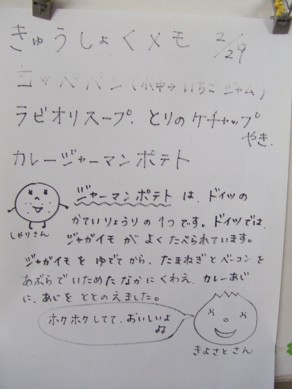 きゅうしょくメモ 2/29
コッペパン(小中→いちごジャム)
ラビオリスープ. とりのケチャップ
やき.
カレージャーマンポテト
ジャーマンポテト は、ドイツの
かていりょうりの1つです。ドイツでは、
ジャガイモ が よく たべられています。
しゃりさん
ジャガイモを ゆでてから、たまねぎとベーコンを
あぶらでいためた なかにくわえ、カレーあじ
に、あじを ととのえました。
ホクホクしてて、おいしいよ
ね
きよさとさん